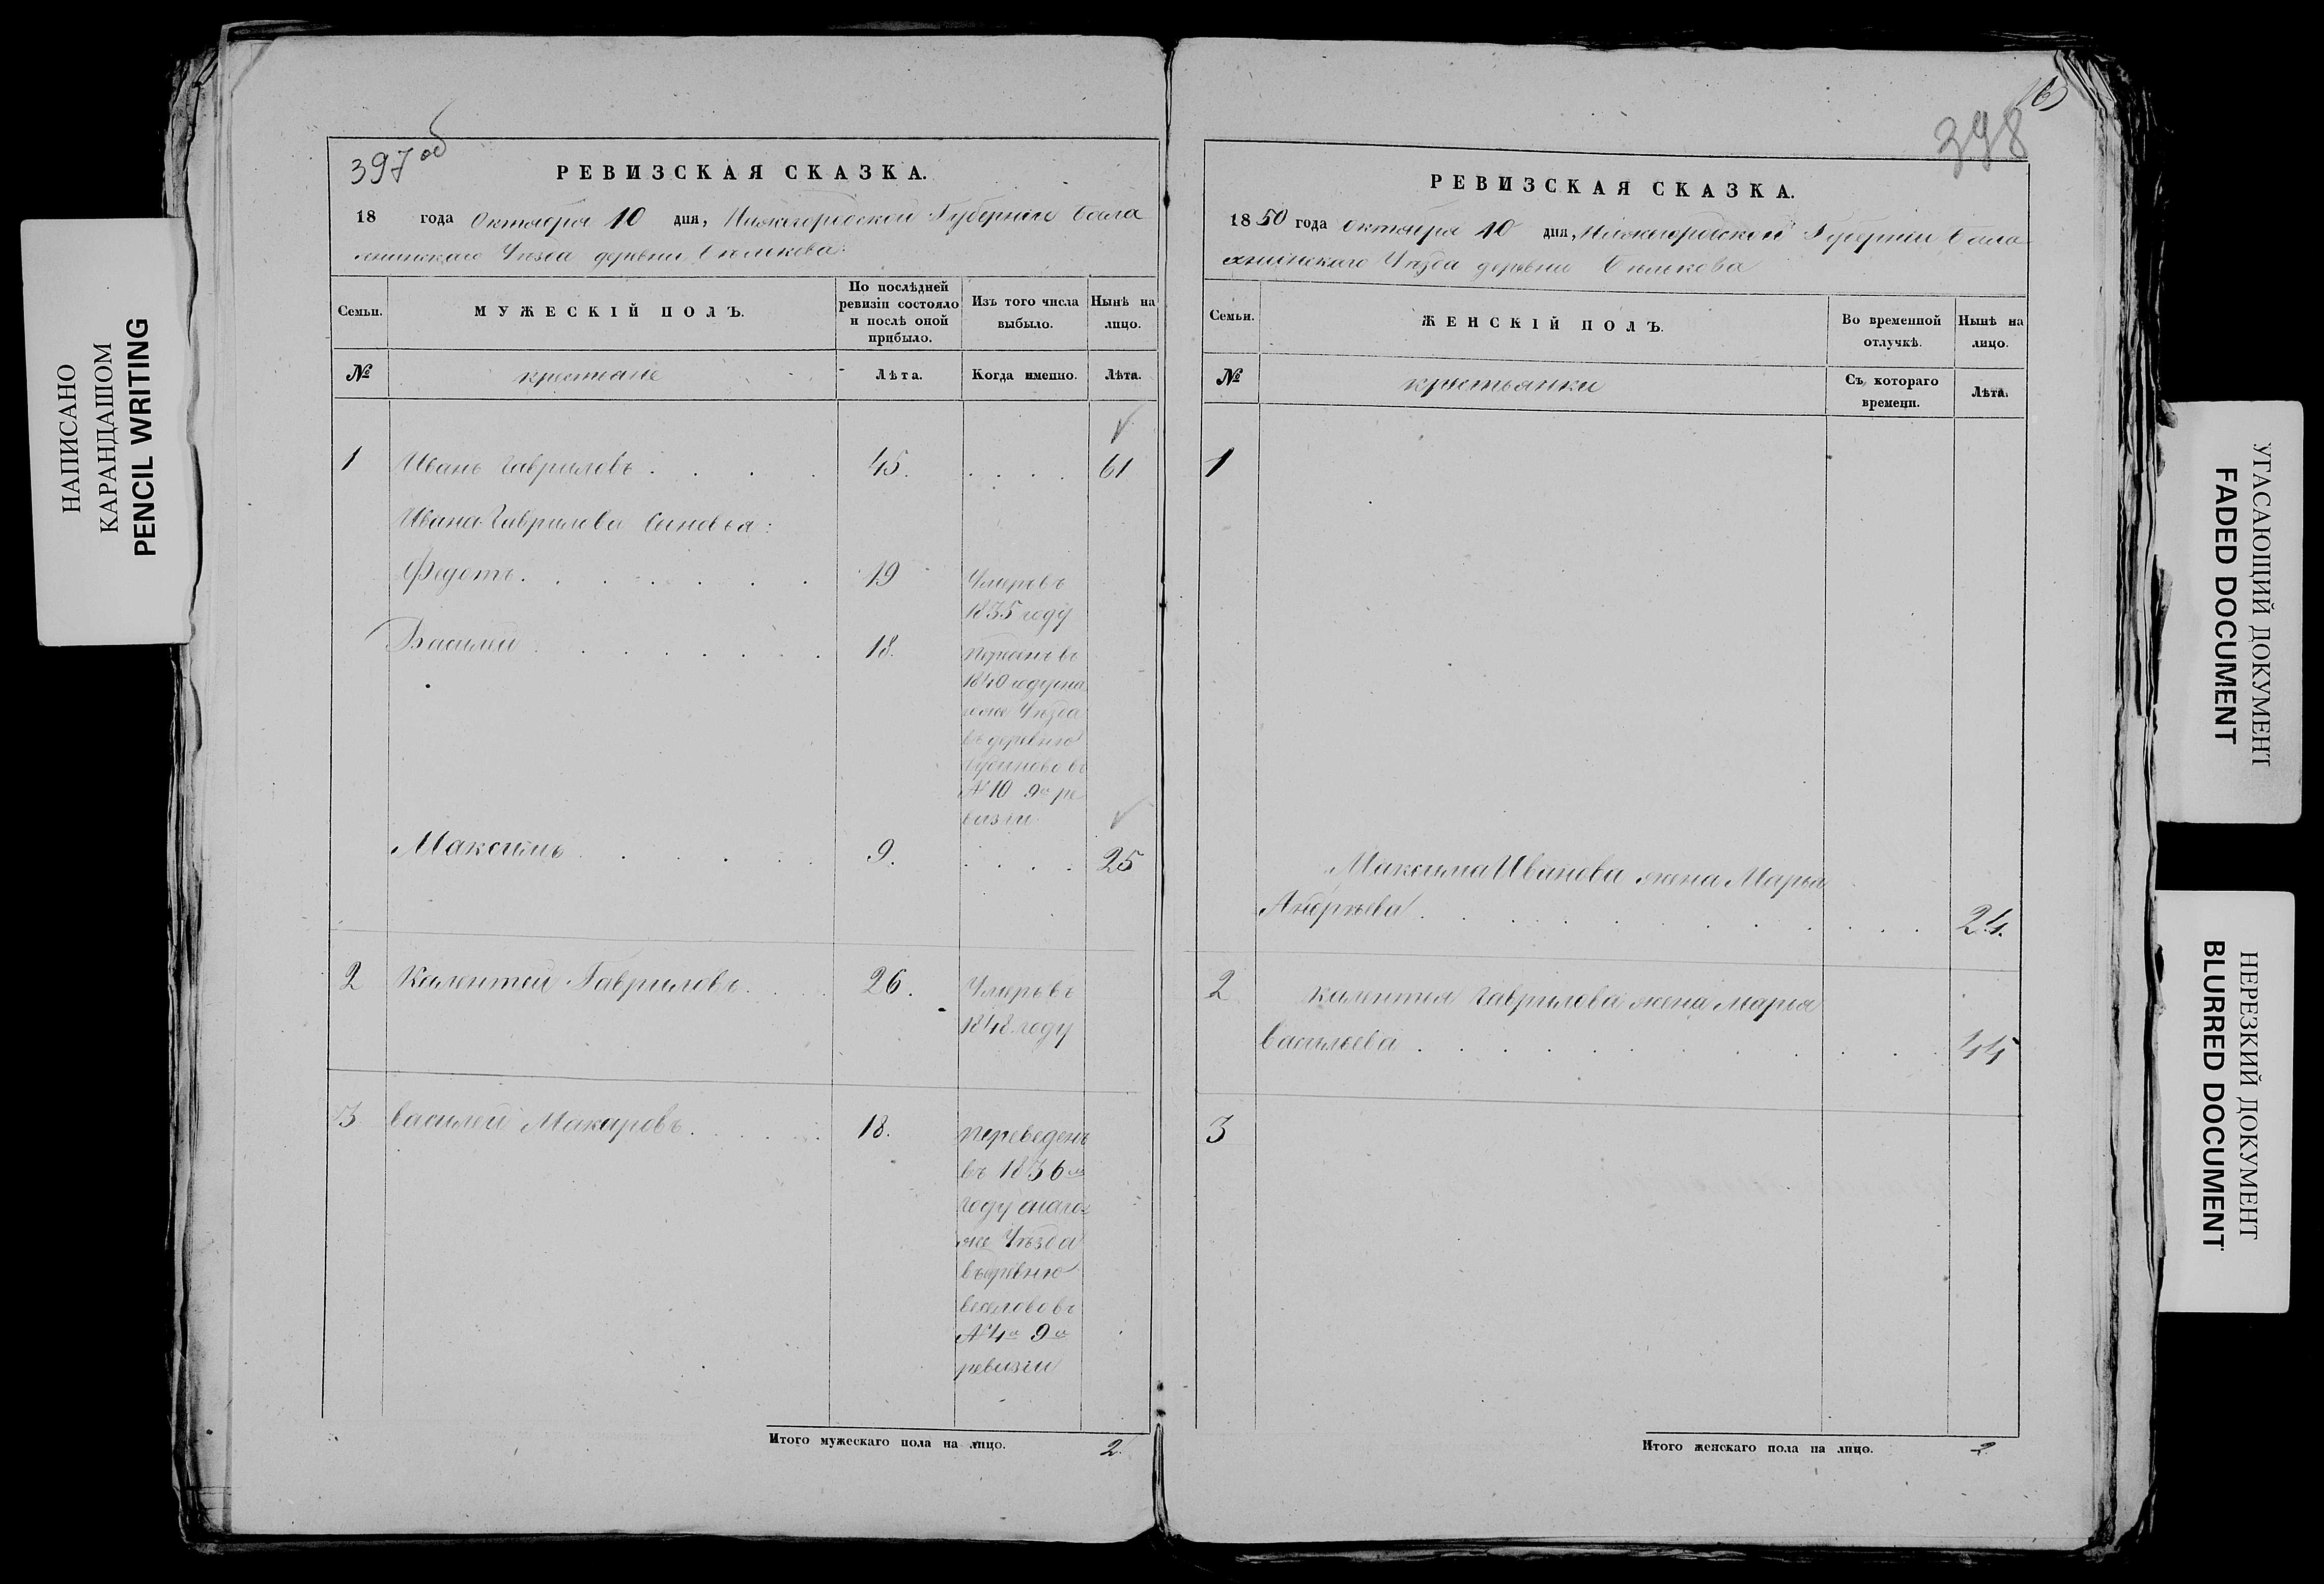 НАПИСАНО
КАРАНДАШОМ
PENCIL WRITING
397 об
РЕВИЗСКАЯ СКАЗКА.
18 года Октября 10 дня, Нижегородской Губернiи Бала
хнинскаго Уѣзда деревни Бѣлькова
Семьи.
МУЖЕСКІЙ ПОЛЪ.
По послѣдней ревизіи состояло и послѣ оной прибыло.
Изъ того числа выбыло.
Нынѣ на лицо.
№
крестьяне
Лѣта.
Когда именно.
Лѣта.
1 Иванъ Гавриловъ . . . . 45. . . . . 61
Ивана Гаврилова Сыновья:
Федотъ . . . . . . . 19 Умеръ въ
1835 году
Василей . . . . . . . . 18.
1840 году
же Уѣзда
въ деревню
№ 10 9й ре
визіи
Максимъ . . . . . . 9. . . . . 25
2 Калентей Гавриловъ . . . . 26. Умеръ въ
1848 году
3 Василей Макаровъ . . . . . 18. переведенъ
въ 1836м
году онаго
же Уѣзда
въ деревню
Веселово въ
№ 4й 9й
ревизіи
Итого мужескаго пола на лицо. 2.
398
РЕВИЗСКАЯ СКАЗКА.
1850 года октября 10 дня, Нижегородской Губерніи Бала
хнинскаго Уѣзда деревни Бѣлькова
Семьи.
ЖЕНСКІЙ ПОЛЪ.
Во временной отлучкѣ.
Нынѣ на лицо.
№
крестьянки
Съ котораго времени.
Лѣта.
1
Максима Иванова жена Марья
Андрѣева . . . . . . . . . . 24.
2 Калентия Гаврилова жена Марья
Васильева . . . . . . . . . . 44
3
Итого женскаго пола на лицо. 2
УГАСАЮЩИЙ ДОКУМЕНТ
FADED DOCUMENT
НЕРЕЗКИЙ ДОКУМЕНТ
BLURRED DOCUMENT